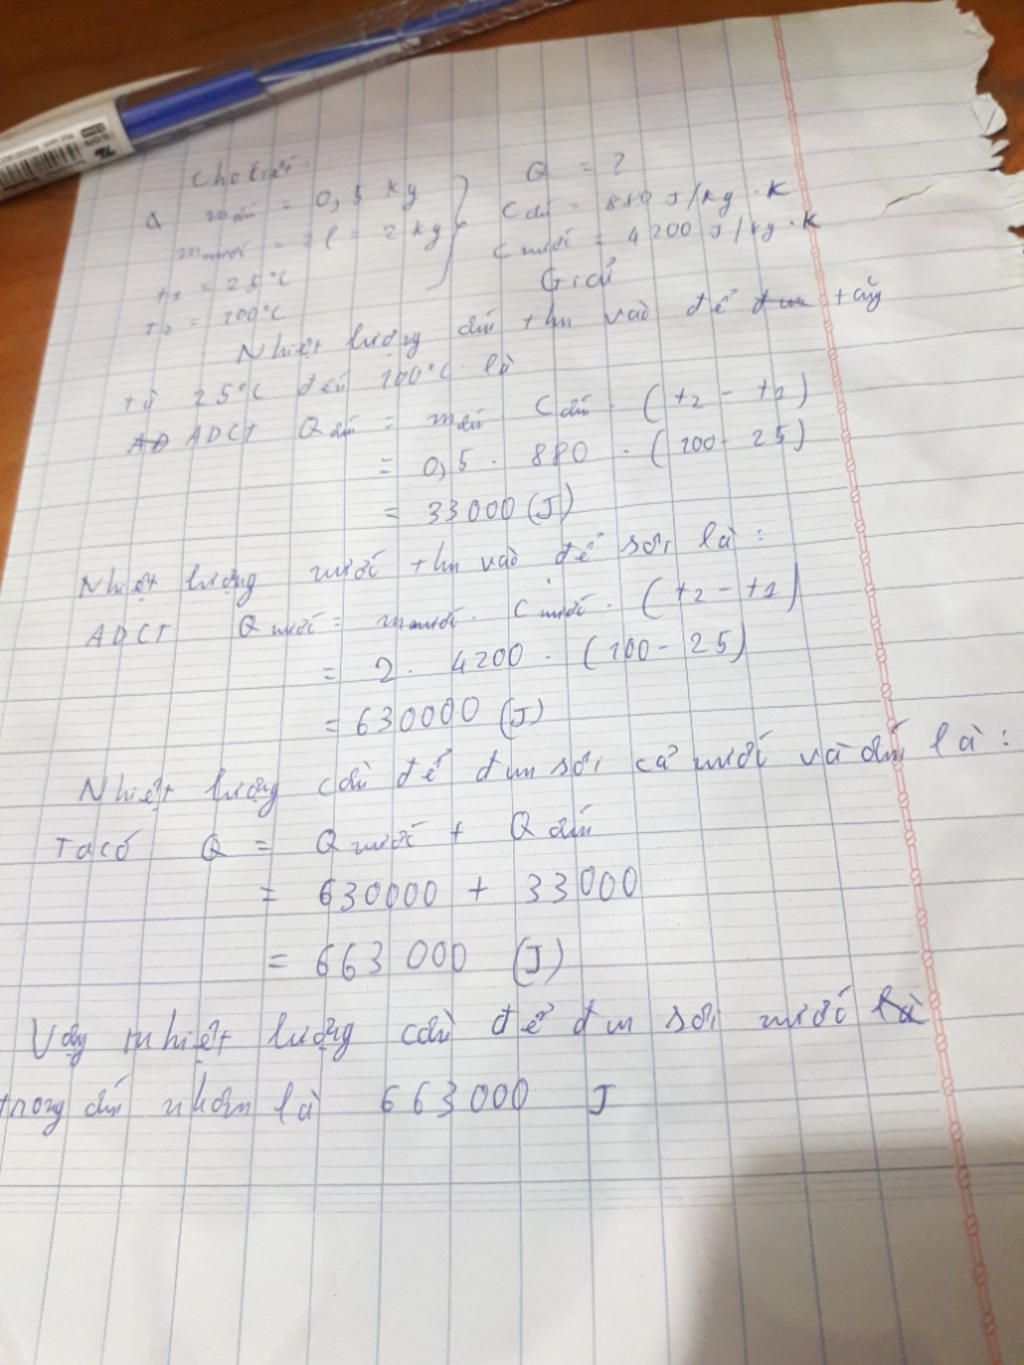 Cho biết:
m ấm = 0,5 kg
Q = ?
m nước = 2 l = 2 kg
C ấm = 880 J/kg.K
t1 = 25°C
C nước = 4200 J/kg.K
t2 = 100°C
Giải
Nhiệt lượng ấm thu vào để tăng
từ 25°C đến 100°C là
ADCT Q ấm = m ấm C ấm . (t2 - t1)
= 0,5 . 880 . (100 - 25)
= 33000 (J)
Nhiệt lượng nước thu vào để sôi là:
ADCT Q nước = m nước . C nước . (t2 - t1)
= 2 . 4200 . (100 - 25)
= 630000 (J)
Nhiệt lượng cần để đun sôi cả nước và ấm là:
Ta có Q = Q nước + Q ấm
= 630000 + 33000
= 663000 (J)
Vậy nhiệt lượng cần để đun sôi nước
trong ấm nhôm là 663000 J